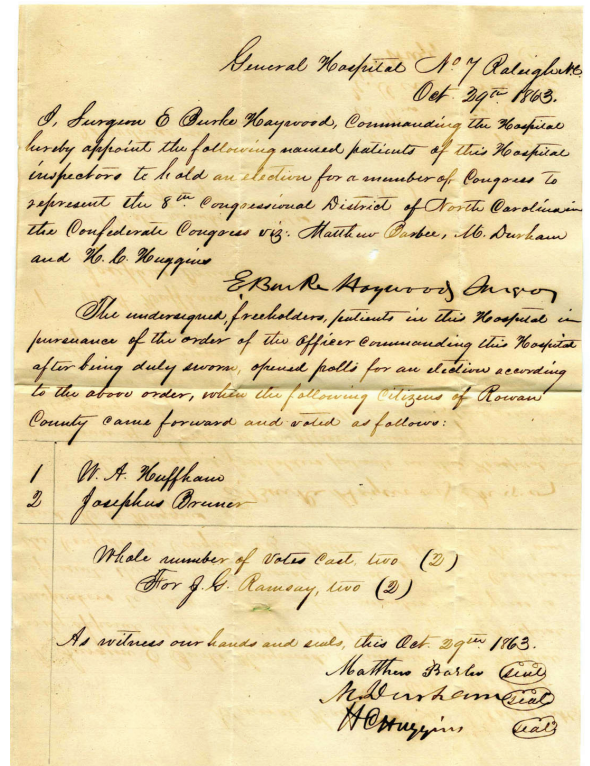 General Hospital No 7 Raleigh N.C.
Oct. 29th 1863.
I, Surgeon E Burke Haywood, Commanding the Hospital
hereby appoint the following named patients of this Hospital
inspectors to hold an election for a member of Congress to
represent the 8th Congressional District of North Carolina in
the Confederate Congress viz: Matthew Barbee, M. Durham
and H. C. Huggins
E Burke Haywood Surgeon
The undersigned, freeholders, patients in this Hospital in
pursuance of the order of the Officer commanding this Hospital
after being duly sworn, opened polls for an election according
to the above order, when the following Citizens of Rowan
County came forward and voted as follows:
1 W. A. Huffham
2 Josephus Bruner
Whole number of Votes Cast, two (2)
For J. G. Ramsay, two (2)
As witness our hands and seals, this Oct. 29th 1863.
Matthew Barbee seal
M Durham seal
H C Huggins seal